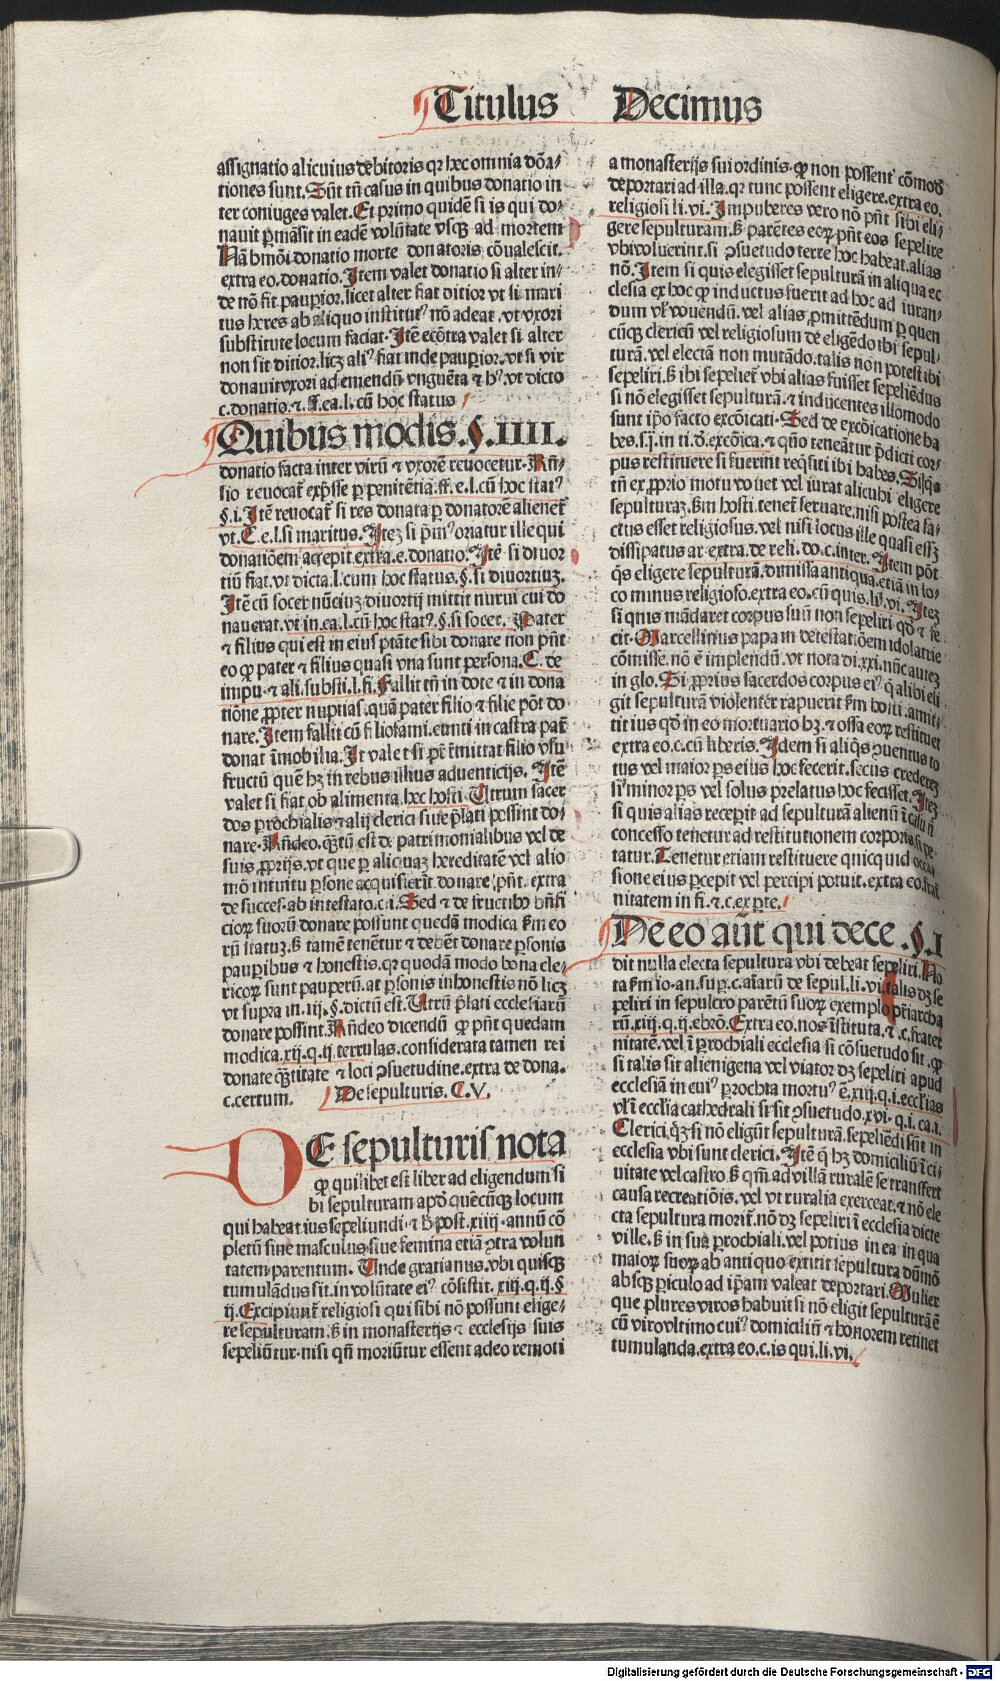 Titulus Decimus
assignatio alicuius debitoris qꝛ hec omnia dōa⸗
tiones sunt. Sūt tñ casus in quibus donatio in
ter coniuges valet. Et primo quidē si is qui do⸗
nauit ꝑmāsit in eadē volūtate vsqꝫ ad mortem
Nā hmōi donatio morte donatoris cōualescit.
extra eo. donatio. Item valet donatio si alter in⸗
de nō fit pauꝑior. licet alter fiat ditior vt si mari
tus heres ab aliquo institutꝰ nō adeat. vt vxori
substitute locum faciat. Itē ecōtra valet si alter
non sit ditior. licꝫ aliꝰ fiat inde pauꝑior. vt si vir
donauit vxori ad emendū vnguēta ⁊ hꝰ. vt dicto
c. donatio. ⁊. ff. ea. l. cū hoc status
Quibus modis. §. IIII.
donatio facta inter virū ⁊ vxorē reuocetur. Rñ⸗
sio reuocat̄ exp̄sse ꝑ penitētiā. ff. e. l. cū hoc statꝰ
§. i. Itē reuocat̄ si res donata ꝑ donatorē alienet̄
vt. C. e. l. si maritus. Itez si p̄mꝰ oriatur ille qui
donatiōem accepit. extra. e. donatio. Itē si diuor
tiū fiat. vt dicta. l. cum hoc status. §. si diuortiuz.
Itē cū socer nūciuz diuortij mittit nurui cui do
nauerat. vt in. ea. l. cū hoc statꝰ. §. si socer. Pater
⁊ filius qui est in eius ptāte sibi donare non pñt
eo ꝙ pater ⁊ filius quasi vna sunt persona. C. de
impu. ⁊ ali. substi. l. fi. Fallit tñ in dote ⁊ in dona
tiōne ꝓpter nuptias. quā pater filio ⁊ filie pōt do
nare. Item fallit cū filiofami. eunti in castra pat̄
donat īmobilia. It valet si pꝛ̄ ꝑmittat filio vsu
fructū quē hꝫ in rebus illius aduenticijs. Itē
valet si fiat ob alimenta. hec hosti. Utrum sacer
dos ꝑochialis ⁊ alij clerici siue p̄lati possint do⸗
nare. Rñdeo. qꝫtū est de patrimonialibus vel de
suis ꝓprijs. vt que ꝑ aliquaz hereditatē vel alio
mō intuitu ꝑsone acquisierīt donare pñt. extra
de succes. ab intestato. c. i. Sed ⁊ de fructibꝰ bñfi
cioꝝ suorū donare possunt quedā modica ẜm eo
rū statuz. ẜ tamē tenētur ⁊ debēt donare ꝑsonis
pauꝑibus ⁊ honestis. qꝛ quodā modo bona cle⸗
ricoꝝ sunt pauperū. at ꝑsonis inhonestis nō licꝫ
vt supra in. iij. §. dictū est. Utrū p̄lati ecclesiarū
donare possint. Rñdeo dicendū ꝙ pñt quedam
modica. xij. q. ij. terrulas. considerata tamen rei
donate qꝫtitate ⁊ loci ↄsuetudine. extra de dona.
c. certum.
De sepulturis. C. V.
DE sepulturis nota
ꝙ quilibet est liber ad eligendum si
bi sepulturam apd̄ quēcūqꝫ locum
qui habeat ius sepeliundi. ⁊ h̄ post. xiiij. annū cō
pletū siue masculus siue femina etiā ↄtra volun
tatem parentum. Unde gratianus. vbi quisqꝫ
tumulādus sit. in volūtate eiꝰ cōsistit. xiij. q. ij. §
ij. Excipiunt̄ religiosi qui sibi nō possunt elige⸗
re sepulturam. ẜ in monasterijs ⁊ ecclesijs suis
sepeliūtur. nisi qñ moriūtur essent adeo remoti
a monasterijs sui ordinis. ꝙ non possent cōmod
deportari ad illa. qꝛ tunc possent eligere. extra eo.
religiosi li. vi. Impuberes vero nō pñt sibi eli⸗
gere sepulturam. ẜ parētes eoꝝ pñt eos sepelire
vbi voluerint. si ↄsuetudo terre hoc habeat. alias
nō. Item si quis elegisset sepulturā in aliqua ec
clesia ex hoc ꝙ inductus fuerit ad hoc ad iuran⸗
dum vl̓ vouendū. vel alias ꝓmittēdum ꝑ quen
cūqꝫ clericū vel religiosum de eligēdo ibi sepul⸗
turā. vel electā non mutādo. talis non potest ibi
sepeliri. ẜ ibi sepeliet̄ vbi alias fuisset sepeliēdus
si nō elegisset sepulturā. ⁊ inducentes illomodo
sunt ip̄o facto excōicati. Sed de excōicatione ha
bes. s. j. in ti. d̄. excōica. ⁊ qūo teneātur p̄dicti cor⸗
pus restituere si fuerint reqsiti ibi habes. Si qs
tñ ex ꝓprio motu vouet vel iurat alicubi eligere
sepulturaz. ẜm hosti. tenet̄ seruare. nisi postea fa⸗
ctus esset religiosus. vel nisi locus ille quasi eēt
dissipatus ar. extra. de reli. do. c. inter. Item pōt
qs eligere sepulturā. dimissa antiqua. etiā in lo⸗
co minus religioso. extra eo. cū quis. li. vi. Itez
si quis mādaret corpus suū non sepeliri qd̄ ⁊ fe
cit. Marcellinus papa in detestatiōem idolatrie
cōmisse. nō ē implendū. vt nota di. xxi. nūc autez
in glo. Si ꝓprius sacerdos corpus eiꝰ q̄ alibi eli
git sepulturā violenter rapuerit ẜm hosti. amit⸗
tit ius qd̄ in eo mortuario hꝫ. ⁊ ossa eoꝝ restituet
extra eo. c. cū liberis. Idem si aliqs ↄuentus to
tus vel maior ꝑs eius hoc fecerit. secus crederez
si minor ꝑs vel solus prelatus hoc fecisset. Itez
si quis alias recepit ad sepulturā alienū
concesso tenetur ad restitutionem corporis si pe⸗
tatur. Tenetur etiam restituere quicquid occa
sione eius ꝑcepit vel percipi potuit. extra eo.
nitatem in fi. ⁊. c. ex ꝑte.
De eo aūt qui dece. §. I
dit nulla electa sepultura vbi debeat sepeliri. No
ta ẜm io. an. sup. c. aīarū de sepul. li. vi. talis dꝫ se
peliri in sepulcro parētū suoꝝ exemplo p̄riarcha
rū. xiij. q. ij. ebrō. Extra eo. nos īstituta. ⁊. c. frater
nitatē. vel ī ꝑochiali ecclesia si cōsuetudo sit. ꝙ
si talis sit alienigena vel viator dꝫ sepeliri apud
ecclesiā in cuiꝰ ꝑochia mortuꝰ ē. xiij. q. i. ecclīas
vl̓ ī ecclīa cathedrali si sit ↄsuetudo. xvi. q. i. ca. i.
Clerici. qꝫ si nō eligūt sepulturā. sepeliēdi sūt in
ecclesia vbi sunt clerici. Itē q̄ hꝫ domiciliū ī ci⸗
uitate vel castro. ẜ qm̄ ad villā ruralē se transfert
causa recreatiōis. vel vt ruralia exerceat. ⁊ nō ele
cta sepultura morit̄. nō dꝫ sepeliri ī ecclesia dicte
ville. ẜ in sua ꝑochiali. vel potius in ea in qua
maioꝝ suoꝝ ab antiquo extitit sepultura dūmō
absqꝫ ꝑiculo ad ip̄am valeat deportari. Mulier
que plures viros habuit si nō eligit sepulturā ē
cū viro vltimo cuiꝰ domiciliū ⁊ honorem retinet
tumulanda. extra eo. c. is qui. li. vi.
Digitalisierung gefördert durch die Deutsche Forschungsgemeinschaft - DFG